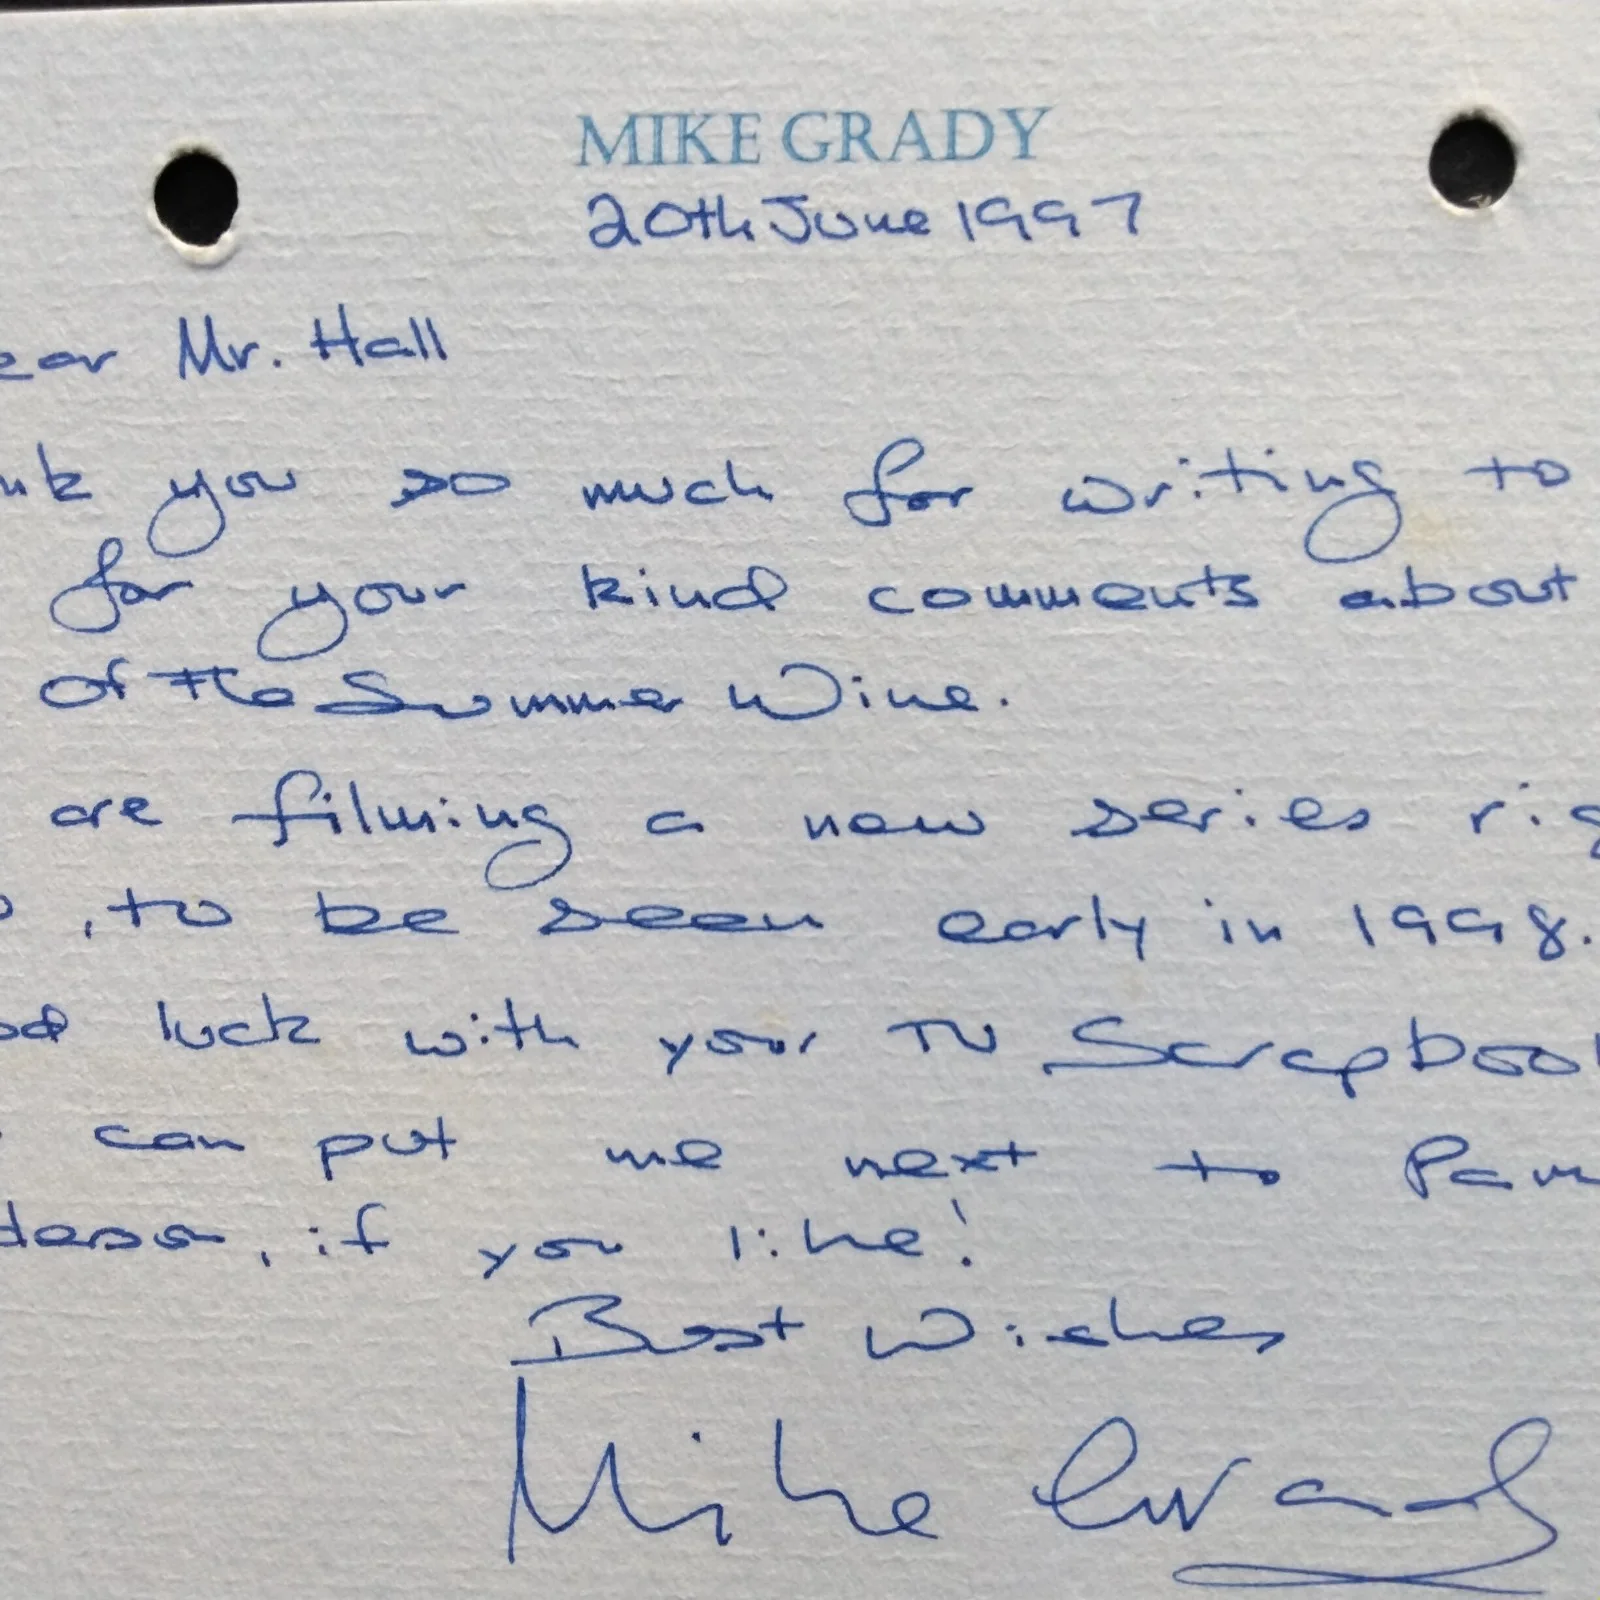 MIKE GRADY
20th June 1997
ear Mr. Hall
nk you so much for writing to
for your kind comments about
of the Summer Wine.
are filming a new series rig
, to be seen early in 1998.
od luck with your TV Scrapboo
can put me next to Pam
derson, if you like!
Best Wishes
Mike Grady